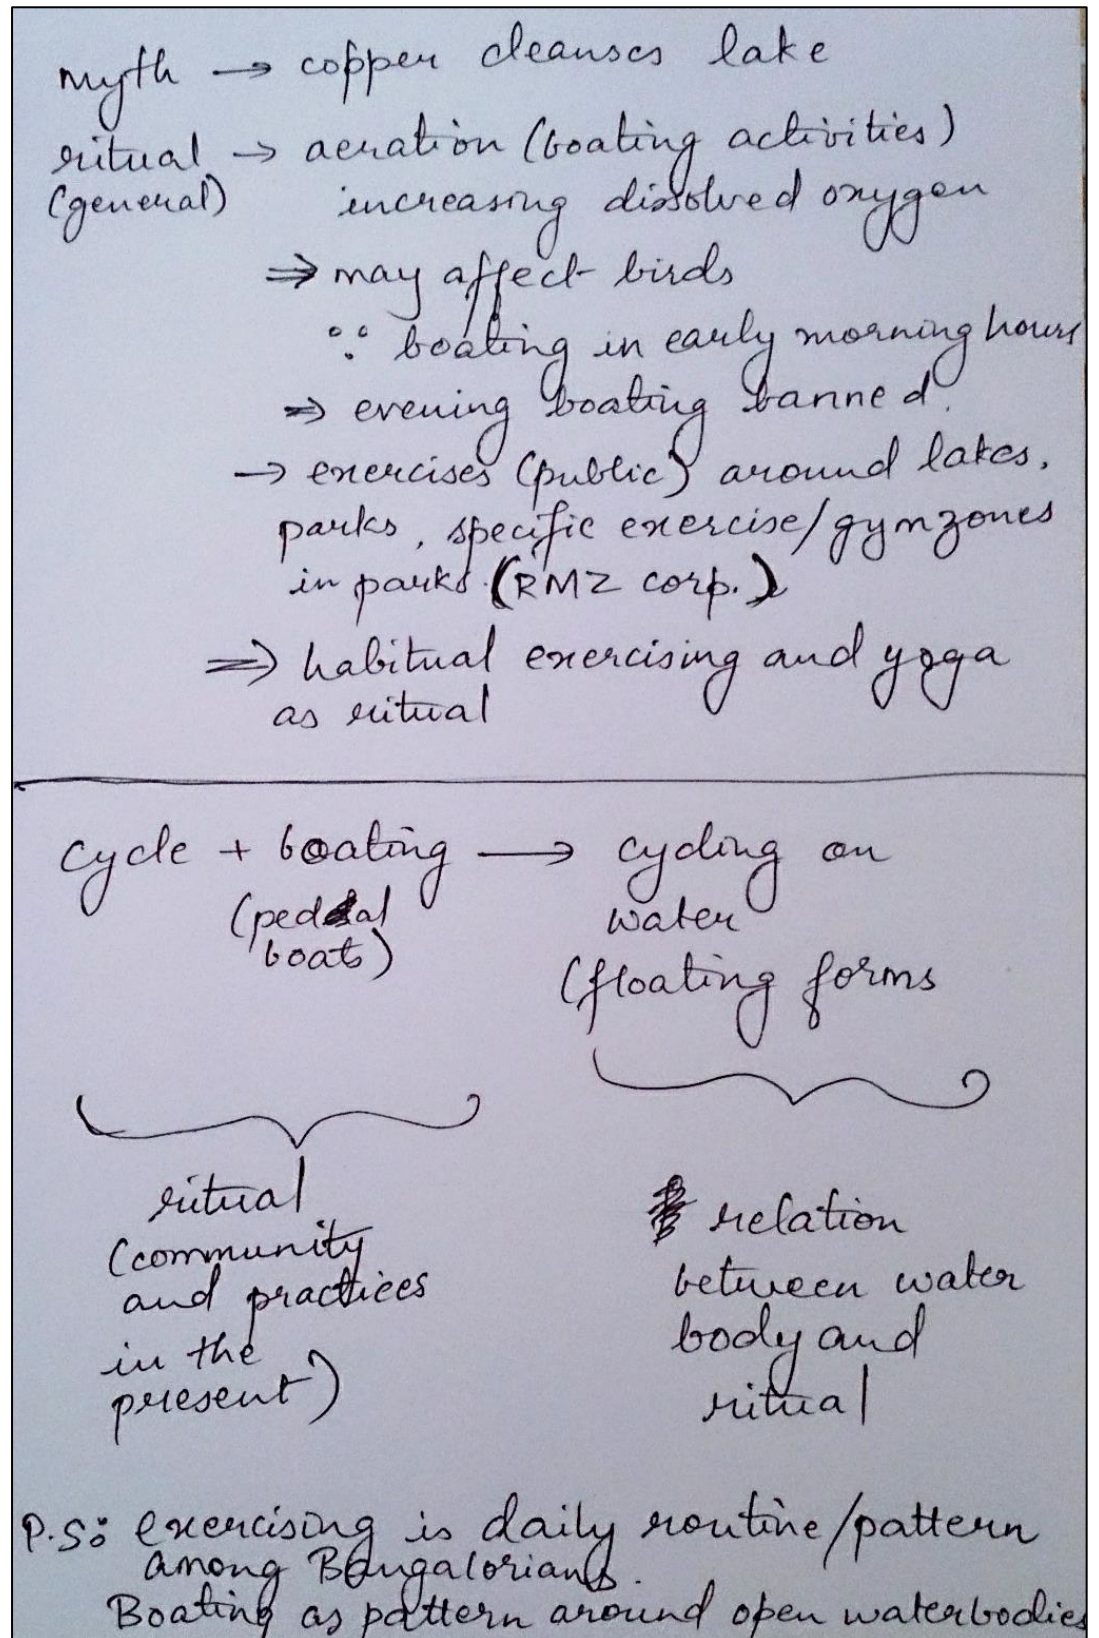 myth → copper cleanses lake
ritual → aeration (boating activities)
(general) increasing dissolved oxygen
⇒ may affect birds
∵ boating in early morning hours
⇒ evening boating banned.
→ exercises (public) around lakes,
parks, specific exercise/gymzones
in parks. (RMZ corp.)
⇒ habitual exercising and yoga
as ritual
cycle + boating → cycling on
(pedal water
boats) (floating forms
ritual relation
(community between water
and practices body and
in the ritual
present)
P.S: exercising is daily routine/pattern
among Bangalorians.
Boating as pattern around open waterbodies